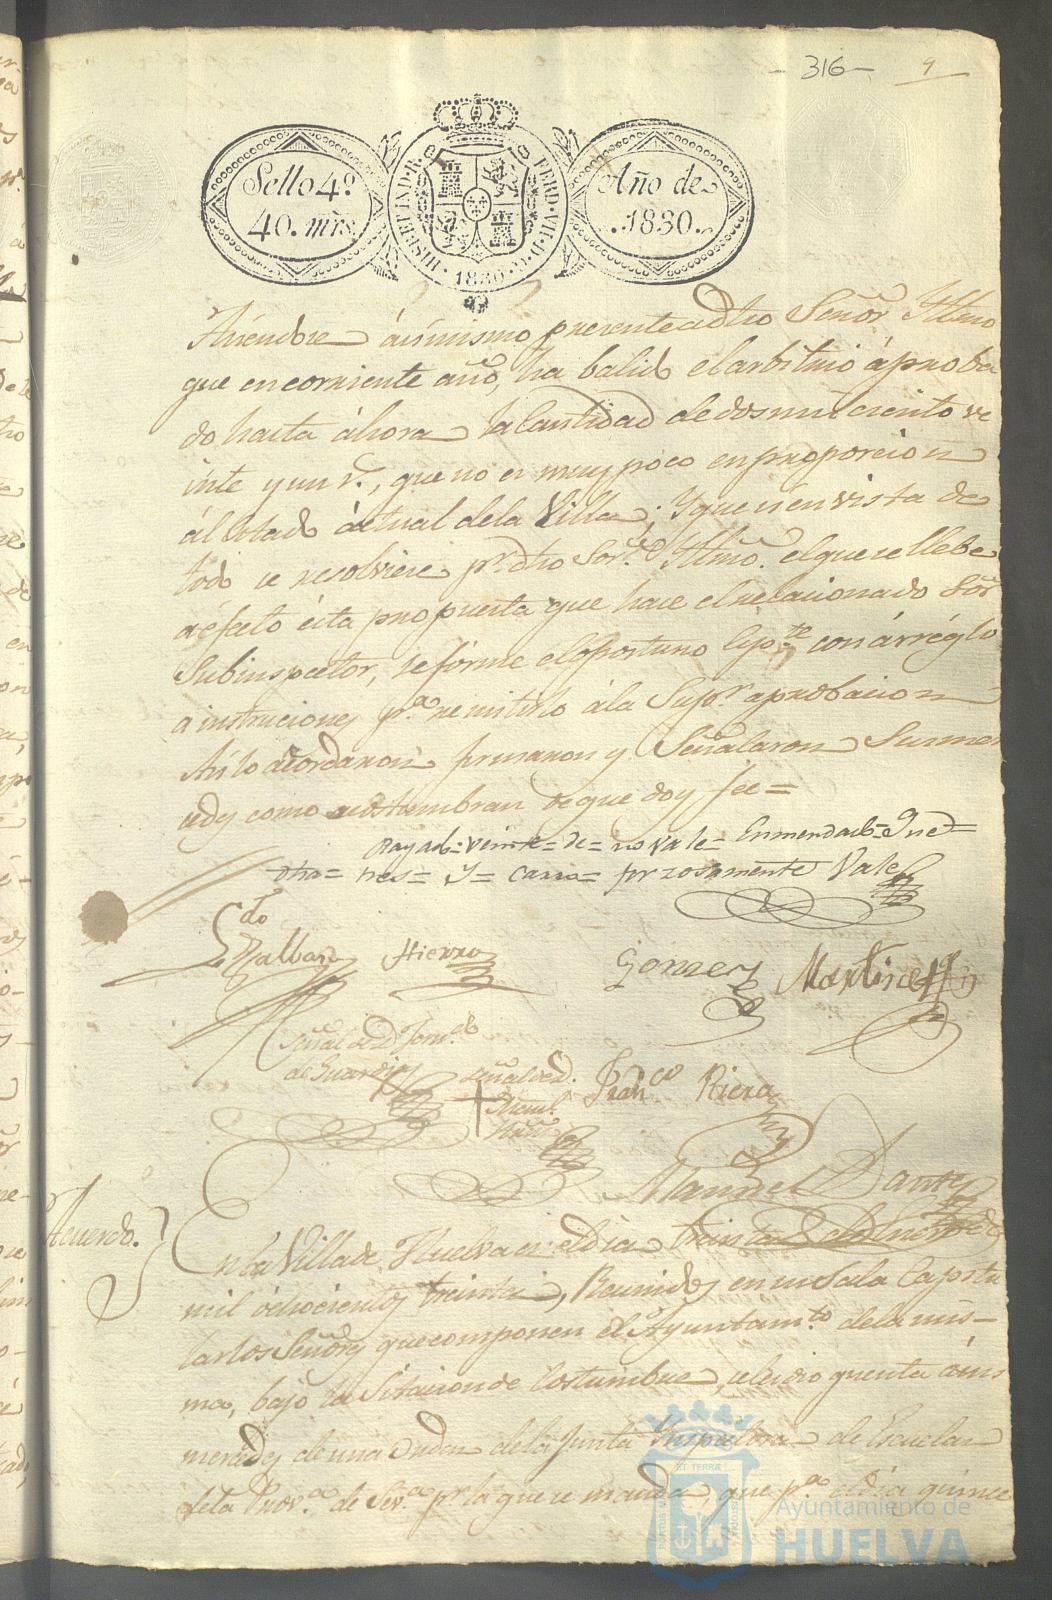 316 9
Sello 4º
40. mrs.
HISP. ET IND. R. FERD. VII. D. G. 1830
Año de
1830.
Haciendose ásimismo presente a dho Señor Illmo
que en corriente año, ha balido el arbitrio áproba
do hasta áhora la Cantidad de dos mil ciento ve
inte y un r.s, que no es muy poco en proporcion
ál estado áctual dela Villa; Y que si en vista de
todo se resolviere p.r dho Sor. Illmo. el que se llebe
a éfecto ésta propuesta que hace el relacionado Sor
Subinspector, se fórme el óportuno Exp.te con árréglo
a instruciones p.a remitirlo á la Sup.r aprobacion
Asi lo acordaron firmaron y Señalaron Sus mer
cedes como acostumbran de que doy fee =
Rayado = veinte = de = no vale = Enmendado = Que =
otra = nes = Y = = Vale
Hierro Gomez Martinez
Señal de D. Dom.do
de Guardia
Señal de D.
Fran.co Riera
Manuel
Acuerdo.
En la Villa de Huelva en el dia treinta de Enero de
mil óchocientos treinta, Reunidos en su Sala Capitu
lar los Señores que componen el Ayuntam.to dela mis-
ma, bajo la Sitacion de Costumbre, se les dio quenta á sus
mercedes de una Orden dela Junta Inspectora de Escuelas
dela Prov.a de Sev.a p.r la que se manda, que p.a el dia quince
ET TERRÆ
Ayuntamiento de
HUELVA